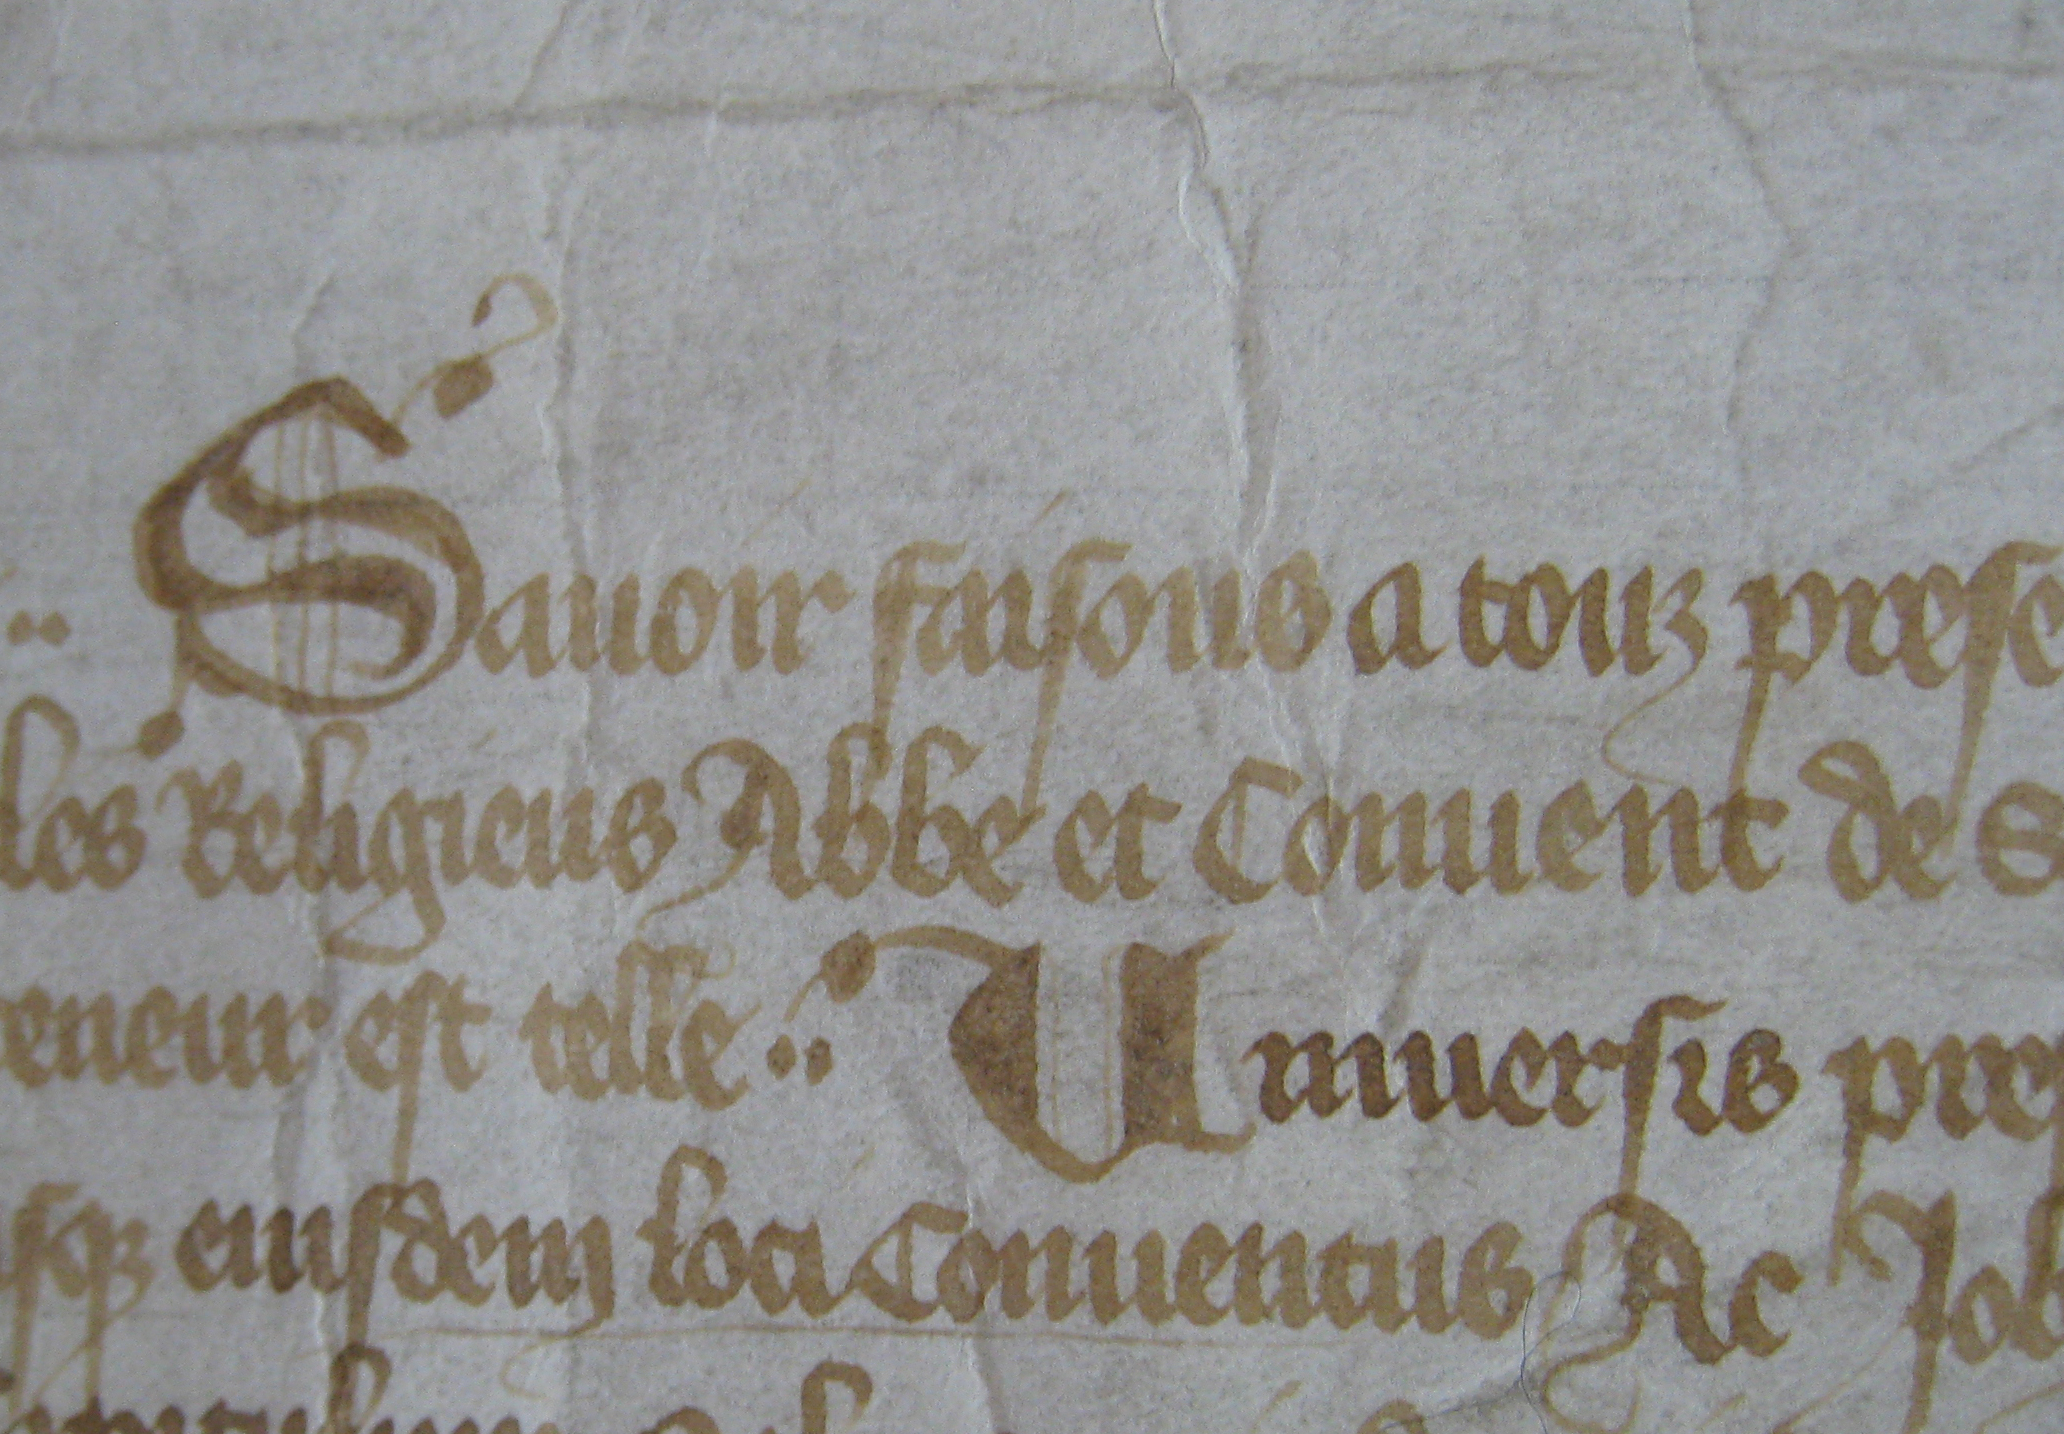 .. Sauoir faisons a touz prese
les Religieus Abbe et Conuent de S
eneur est telle .. Uniuersis pres
sque eiusdem loci Conuentus Ac Joh